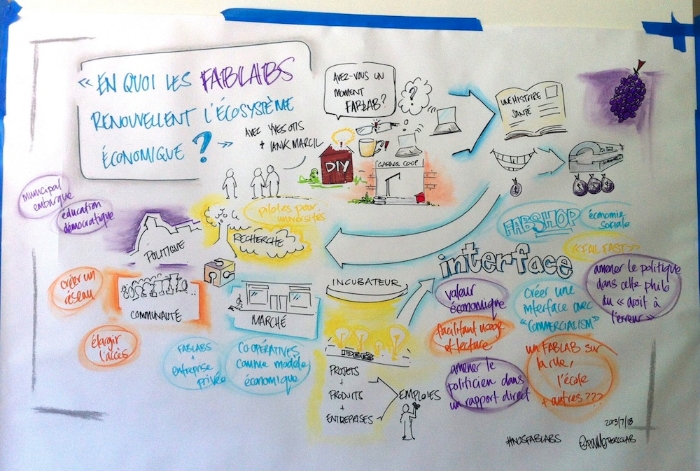 « EN QUOI LES FABLABS
RENOUVELLENT L'ÉCOSYSTÈME
ÉCONOMIQUE ? »
AVEC YVES OTIS
+ IANIK MARCIL
AVEZ-VOUS UN
MOMENT
FABLAB?
?
DIY
GARAGE COOP
UNE HISTOIRE
SANTÉ
municipal
embarqué
éducation
démocratique
POLITIQUE
pilotes pour
universités
RECHERCHE
créer un
réseau
COMMUNAUTÉ
élargir
l'accès
MARCHÉ
FABLABS
+
entreprise
privée
CO-OPERATIVES
comme modèle
économique
INCUBATEUR
PROJETS
+
PRODUITS
+
ENTREPRISES
EMPLOIES
FABSHOP
économie
sociale
<<FAIL FAST>>
interface
valeur
économique
facilitant usage
et lecture
amener le
politicien dans
un rapport direct
créer une
interface avec
"COMMERCIALISM"
amener le politique
dans cette philo
du « droit à
l'erreur »
un FABLAB sur
la rue,
l'école
+ autres ???
2013/7/18
#NOSFABLABS